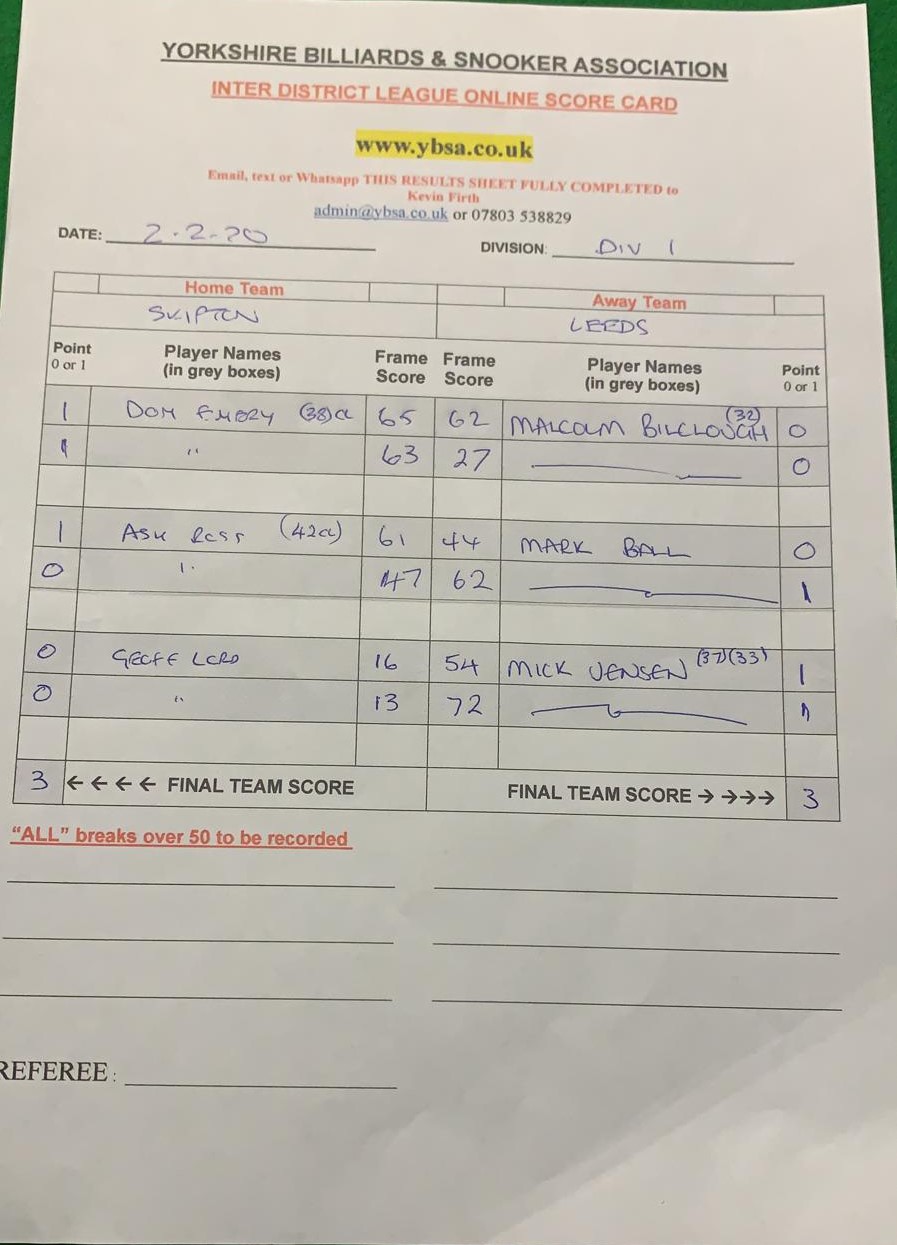 YORKSHIRE BILLIARDS & SNOOKER ASSOCIATION
INTER DISTRICT LEAGUE ONLINE SCORE CARD
www.ybsa.co.uk
Email, text or Whatsapp THIS RESULTS SHEET FULLY COMPLETED to
Kevin Firth
admin@ybsa.co.uk or 07803 538829
DATE: 2-2-20 DIVISION: DIV 1
Home Team Away Team
SKIPTON LEEDS
Point 0 or 1 Player Names (in grey boxes) Frame Score Frame Score Player Names (in grey boxes) Point 0 or 1
1 DOM EMERY (38)cl 65 62 MALCOLM (32) 0
1 " 63 27 0
1 ASH ROSS (42cl) 61 44 MARK BALL 0
0 " 47 62 1
0 GEOFF LORD 16 54 MICK JENSEN (37)(33) 1
0 " 13 72 1
3 ← ← ← ← FINAL TEAM SCORE FINAL TEAM SCORE → →→→ 3
"ALL" breaks over 50 to be recorded
REFEREE: